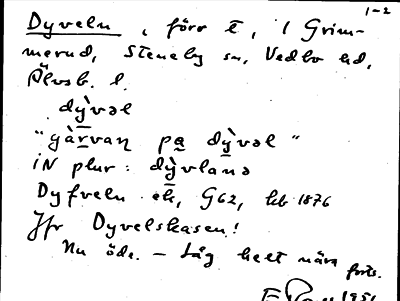 1-2
Dyveln, förr t, i Grim-
merud, Steneby sn, Vedbo hd,
Älvsb. l.
dỳvəl
"gàrvan pa dỳvəl"
iN plur: dỳvlana
Dyfveln ek, G62, lb 1876
Jfr Dyvelskasen!
Nu öde. – Låg helt nära forts.
1951